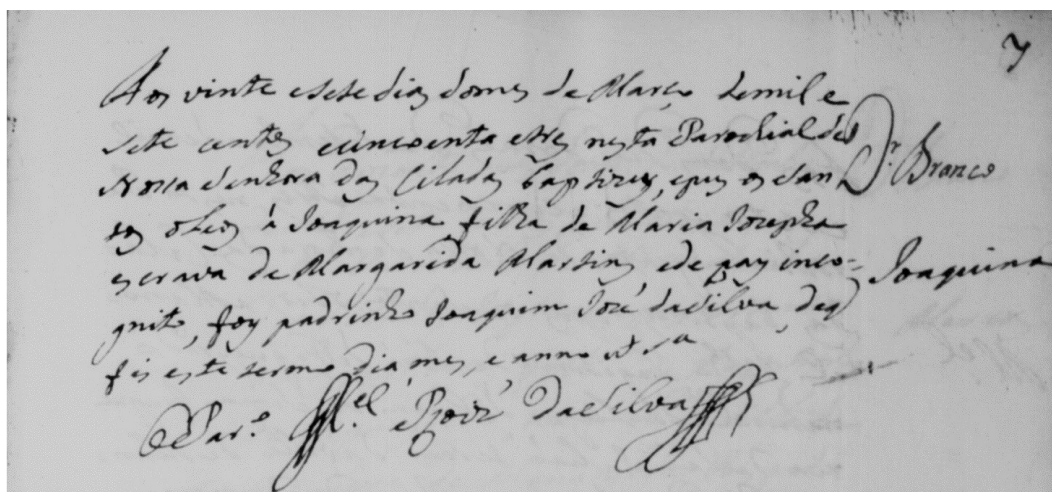 7
Aos vinte e sete dias do mes de Março de mil e
sete centos e cincoenta e tres nesta Parochial de
Nossa Senhora das Ciladas baptizey, e pus os San
tos oleos á Joaquina filha de Maria Jozepha
escrava de Margarida Martins e de pay inco-
gnito, foy padrinho Joaquim Jozé da Silva, de q
fis este termo dia mes, e anno ut sa
O Par.º M.el Roiz da Silva
Branco
Joaquina